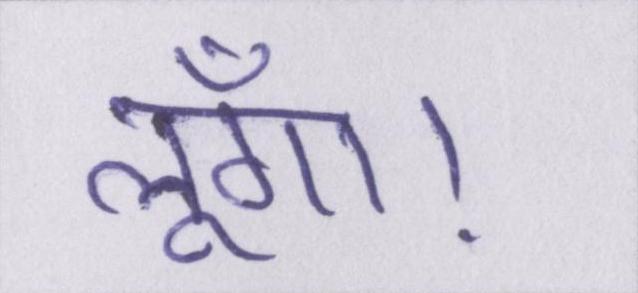 लूँगा!